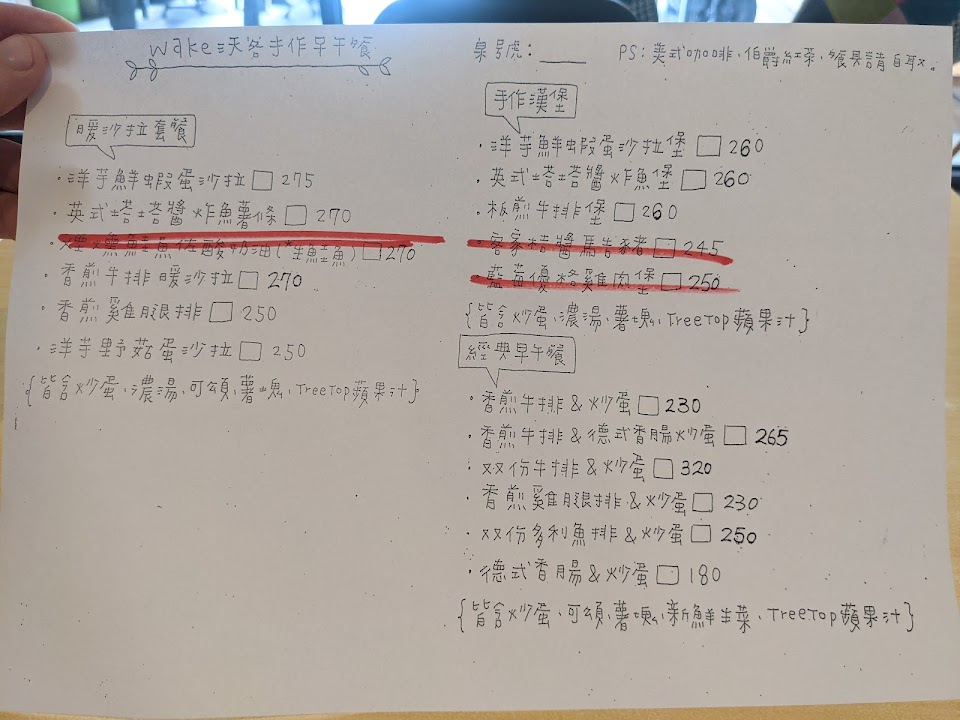 Wake 沃客手作早午餐
桌號: ____
PS: 美式咖啡、伯爵紅茶、餐具請自取。
暖沙拉套餐
·洋芋鮮蝦蛋沙拉□275
·英式塔塔醬炸魚薯條□270
·煙燻鮭魚佐酸奶油(*生鮭魚)□270
·香煎牛排暖沙拉□270
·香煎雞腿排□250
·洋芋野菇蛋沙拉□250
{皆含炒蛋、濃湯、可頌、薯塊、TreeTop蘋果汁}
手作漢堡
·洋芋鮮蝦蛋沙拉堡□260
·英式塔塔醬炸魚堡□260
·板煎牛排堡□260
·客家桔醬馬告豬□245
·藍莓優格雞肉堡□250
{皆含炒蛋、濃湯、薯塊、TreeTop蘋果汁}
經典早午餐
·香煎牛排&炒蛋□230
·香煎牛排&德式香腸炒蛋□265
·双份牛排&炒蛋□320
·香煎雞腿排&炒蛋□230
·双份多利魚排&炒蛋□250
·德式香腸&炒蛋□180
{皆含炒蛋、可頌、薯塊、新鮮生菜、TreeTop蘋果汁}